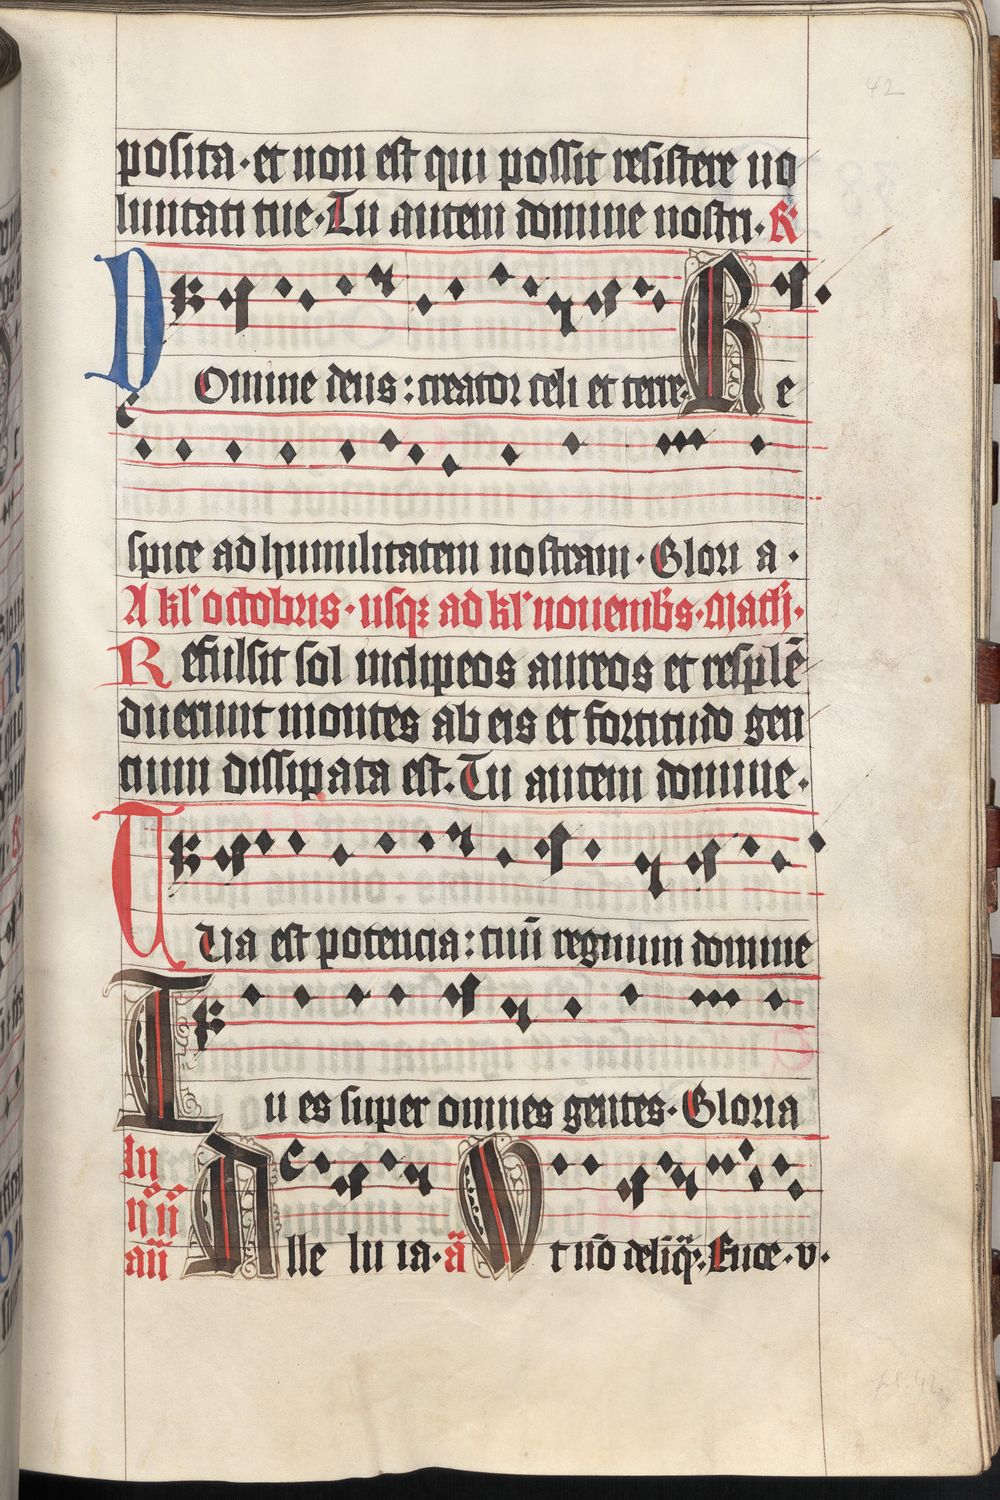 42
posita · et non est qui possit resistere uo
luntati tue · Tu autem domine nostri · R
Domine deus : creator celi et terre Re
spice ad humilitatem nostram · Glori a ·
A kl' octobris · usq; ad kl' nouembs · Math ·
Refulsit sol in clipeos aureos et resplē
duerunt montes ab eis et fortitudo gen
tium dissipata est · Tu autem domine ·
Tua est potencia : tuū regnum domine
Tu es super omnes gentes · Gloria
In
Alle lu ia · ā Ut nō